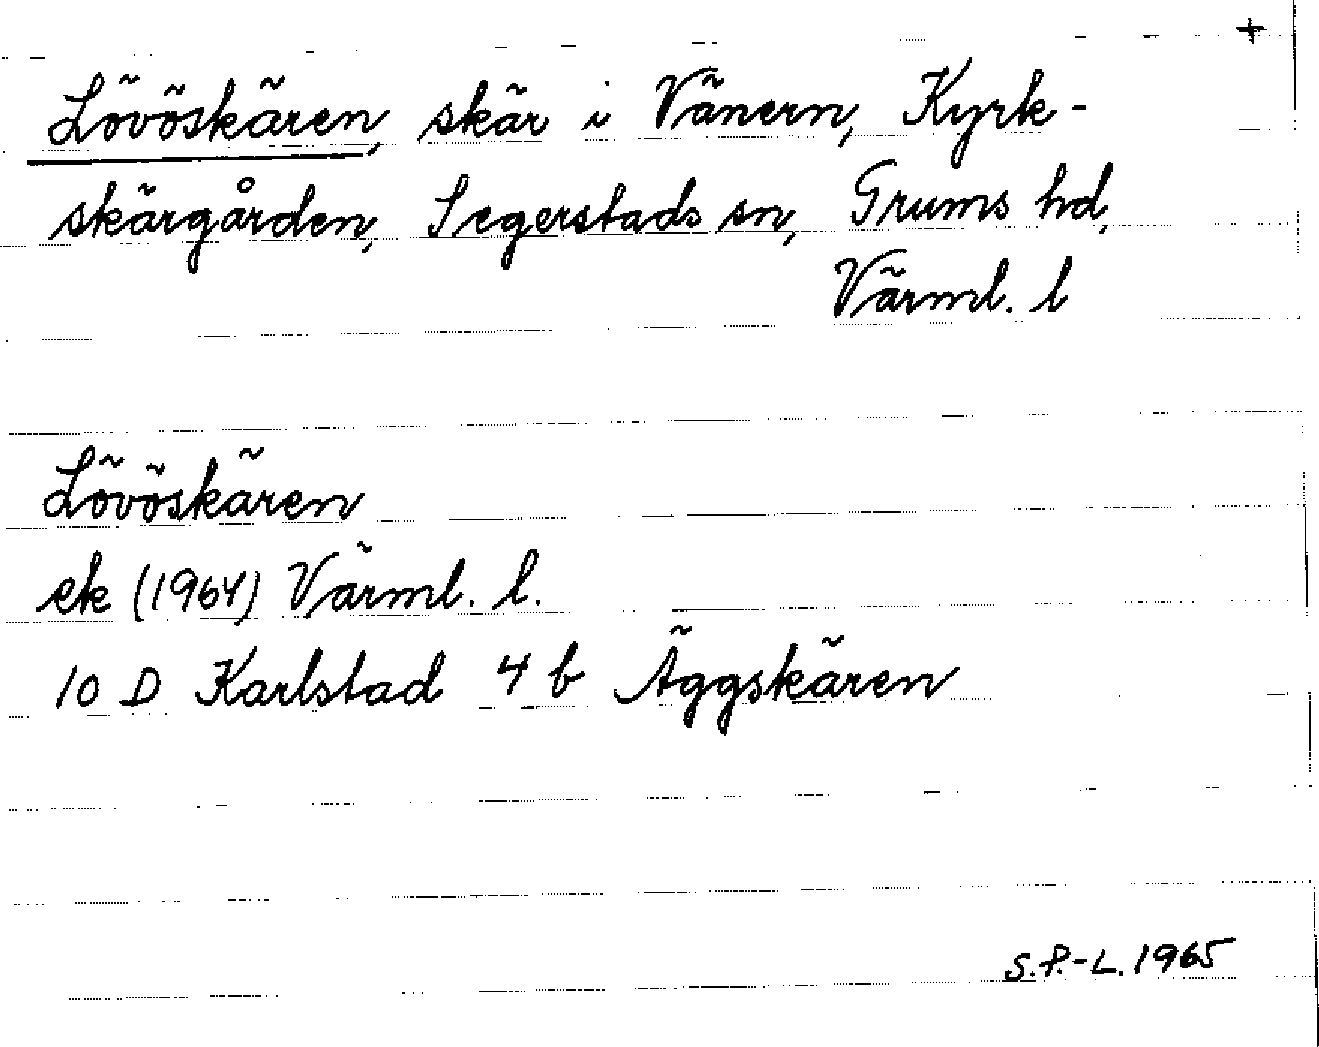 +
Lövöskären, skär i Vänern, Kyrk-
skärgården, Segerstads sn, Grums hd,
Värml. l
Lövöskären
ek (1964) Värml. l.
10 D Karlstad 4 b Äggskären
S.P.-L. 1965